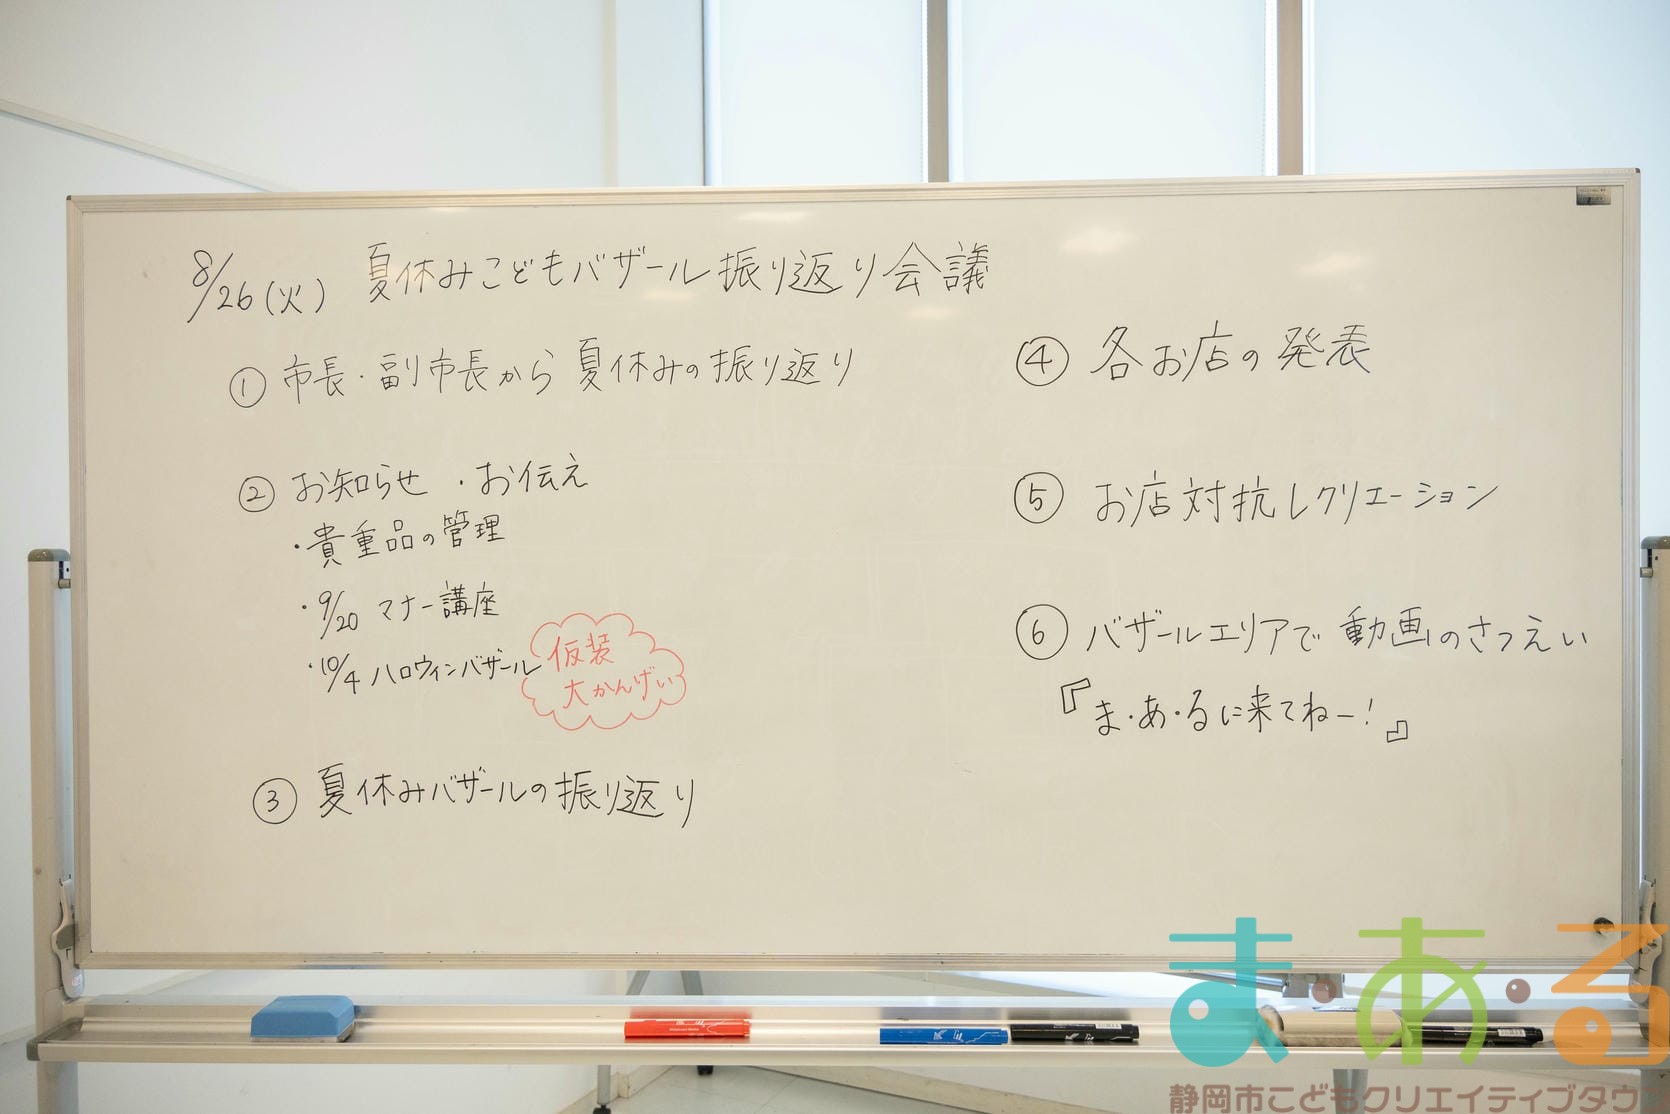 8/26(火) 夏休みこどもバザール振り返り会議
① 市長・副市長から夏休みの振り返り
② お知らせ・お伝え
・貴重品の管理
・9/20 マナー講座
・10/4 ハロウィンバザール
仮装
大かんげい
③ 夏休みバザールの振り返り
④ 各お店の発表
⑤ お店対抗レクリエーション
⑥ バザールエリアで動画のさつえい
『ま・あ・るに来てねー!』
ま・あ・る
静岡市こどもクリエイティブタウン